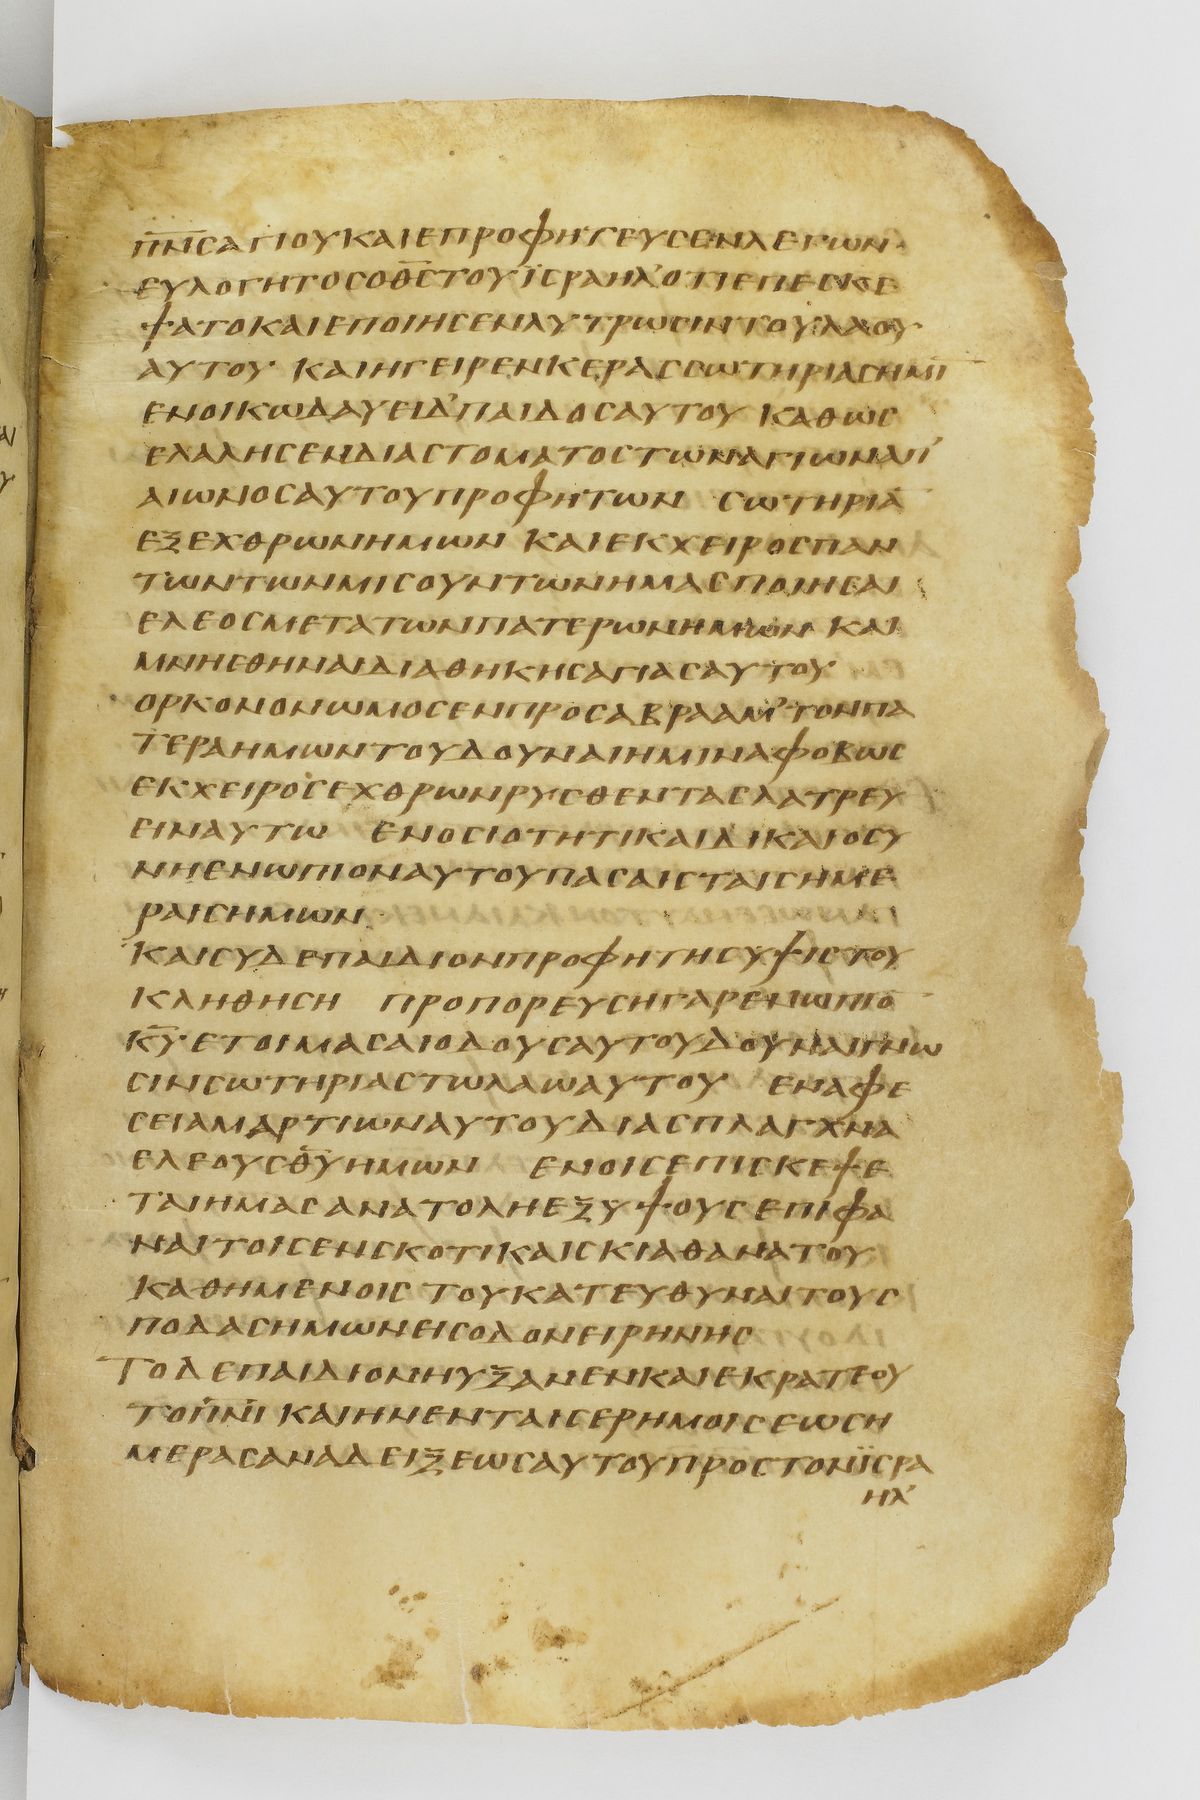 π̅ν̅ς̅ αγιου και επροφητευσεν λεγων
ευλογητος ο θ̅ς̅ του ϊσραηλ' οτι επεσκε
ψατο και εποιησεν λυτρωσιν του λαου
αυτου και ηγειρεν κερας σωτηριας ημι̅
εν οικω δαυειδ' παιδος αυτου καθως
ελαλησεν δια στοματος των αγιων απ'
αιωνος αυτου προφητων σωτηρια̅
εξ εχθρων ημων και εκ χειρος παν
των των μισουντων ημας ποιησαι
ελεος μετα των πατερων ημων και
μνησθηναι διαθηκης αγιας αυτου
ορκον ον ωμοσεν προς αβρααμ' τον πα
τερα ημων του δουναι ημιν αφοβως
εκ χειρος εχθρων ρυσθεντας λατρευ
ειν αυτω εν οσιοτητι και δικαιοσυ
νη ενωπιον αυτου πασαις ταις ημε
ραις ημων
και συ δε παιδιον προφητης υψιστου
κληθηση προπορευση γαρ ενωπιο̅
κ̅υ̅ ετοιμασαι οδους αυτου δουναι γνω
σιν σωτηριας τω λαω αυτου εν αφε
σει αμαρτιων αυτου δια σπλαγχνα
ελεους θ̅υ̅ ημων εν οις επισκεψε
ται ημας ανατολη εξ υψους επιφα
ναι τοις εν σκοτι και σκια θανατου
καθημενοις του κατευθυναι τους
ποδας ημων εις οδον ειρηνης
το δε παιδιον ηυξανεν και εκραταιου
το π̅ν̅ι̅ και ην εν ταις ερημοις εως η
μερας αναδειξεως αυτου προς τον ϊσρα
ηλ'